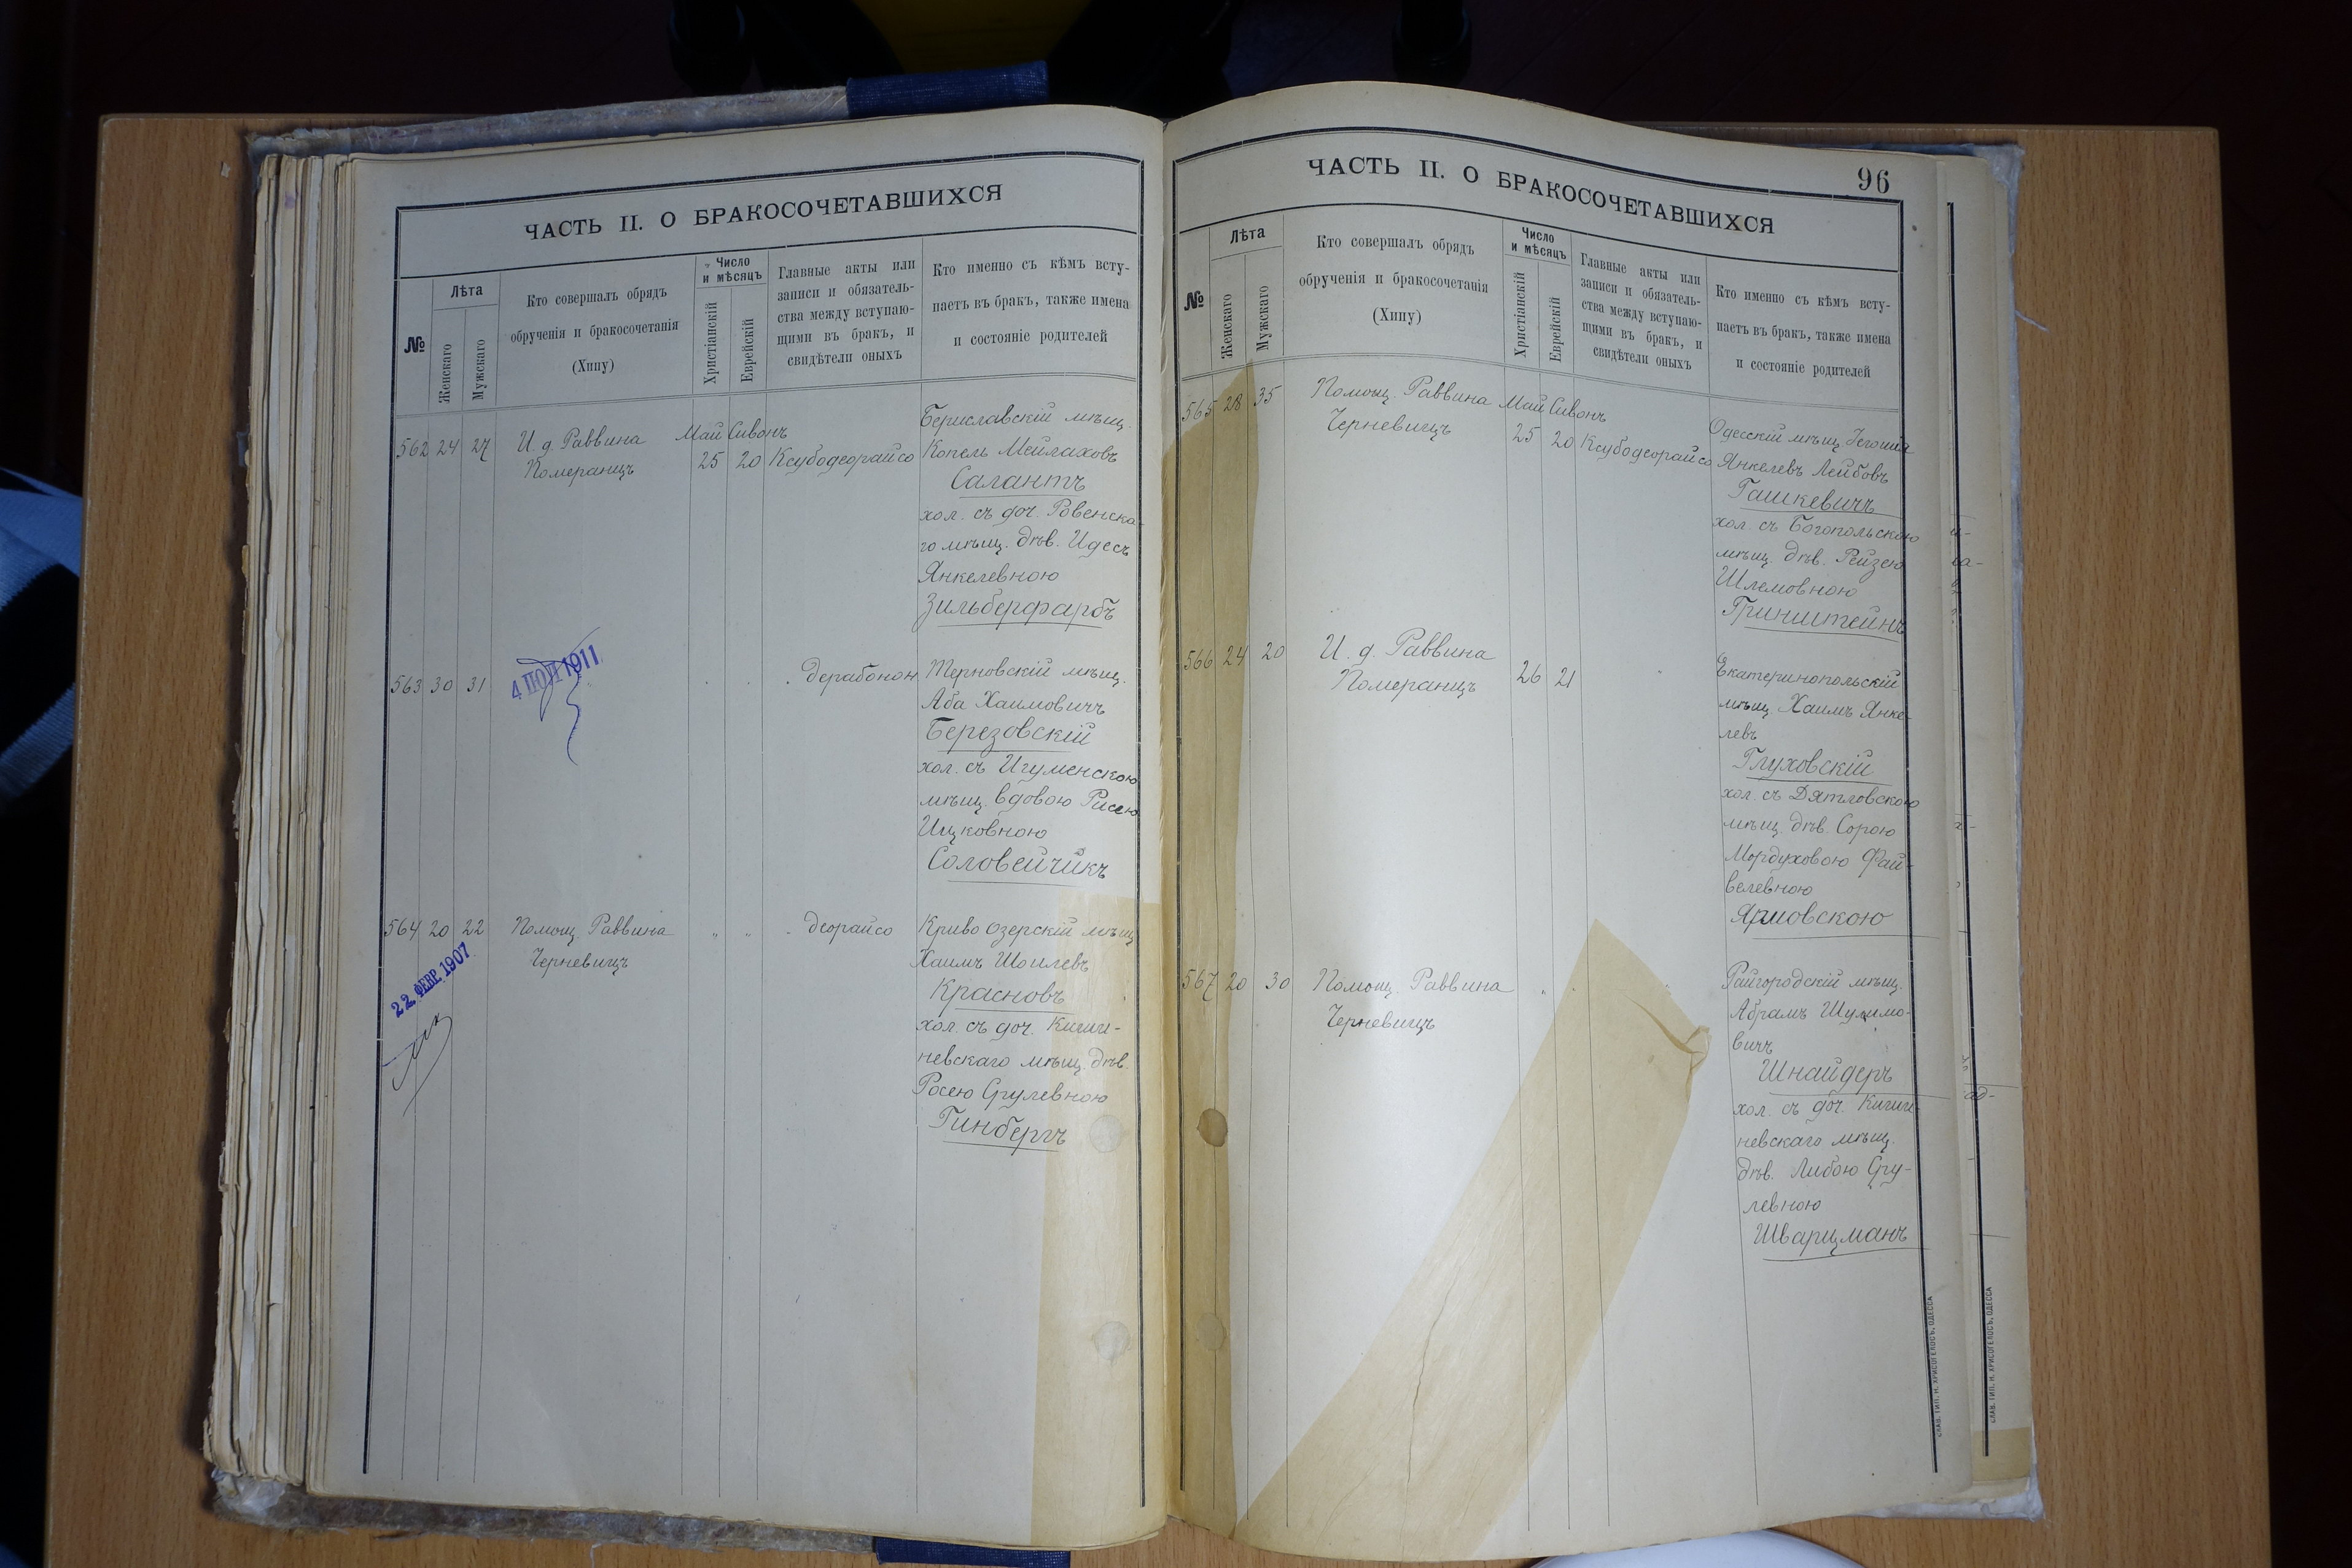 ЧАСТЬ II. О БРАКОСОЧЕТАВШИХСЯ
№
Лѣта
Женскаго
Мужскаго
Кто совершалъ обрядъ
обрученія и бракосочетанія
(Хипу)
Число
и мѣсяцъ
Христіанскій
Еврейскій
Главные акты или
записи и обязатель-
ства между вступаю-
щими въ бракъ, и
свидѣтели оныхъ
Кто именно съ кѣмъ всту-
паетъ въ бракъ, также имена
и состояніе родителей
562 24 27
И. д. Раввина
Померанцъ
Май Сивонъ
25 20 Ксубодеорайсо
Бериславскій мѣщ.
Копель Мейлаховъ
Салантъ
хол. съ доч. Ровенска-
го мѣщ. дѣв. Идесъ
Янкелевною
Зильберфарбъ
563 30 31
4 1911
дерабонон
Терновскій мѣщ.
Аба Хаимовичъ
Березовскій
хол. съ Игуменскою
мѣщ. вдовою Рисею
Ицковною
Соловейчикъ
564 20 22
22 ФЕВР. 1907
Помощ. Раввина
Черневицъ
" "
деорайсо
Криво озерскій мѣщ
Хаимъ Шоилевъ
Красновъ
хол. съ доч. Киши-
невскаго мѣщ. дѣв.
Росею Срулевною
Гинбергъ
96
ЧАСТЬ II. О БРАКОСОЧЕТАВШИХСЯ
№
Лѣта
Женскаго
Мужскаго
Кто совершалъ обрядъ
обрученія и бракосочетанія
(Хипу)
Число
и мѣсяцъ
Христіанскій
Еврейскій
Главные акты или
записи и обязатель-
ства между вступаю-
щими въ бракъ, и
свидѣтели оныхъ
Кто именно съ кѣмъ всту-
паетъ въ бракъ, также имена
и состояніе родителей
565 28 35
Помощ. Раввина
Черневицъ
Май Сивонъ
25 20 Ксубодеорайсо
Одесскій мѣщ.
Янкелевъ Лейбовъ
Гашкевичъ
хол. съ Богопольскою
мѣщ. дѣв. Рейзею
Шлемовною
Гринштейнъ
566 24 20
И. д. Раввина
Померанцъ
26 21
Екатеринопольскій
мѣщ. Хаимъ Янке-
левъ
Глуховскій
хол. съ Дятловскою
мѣщ. дѣв. Сорою
Мордуховою Фай-
велевною
567 20 30
Помощ. Раввина
Черневицъ
Райгородскій мѣщ.
Абрамъ Шулимо-
вичъ
Шнайдеръ
хол. съ доч. Кишин-
невскаго мѣщ.
дѣв. Либою Сру-
левною
Шварцманъ
СЛАВ. ТИП. Н. ХРИСОГЕЛОСЪ, ОДЕССА
СЛАВ. ТИП. Н. ХРИСОГЕЛОСЪ, ОДЕССА